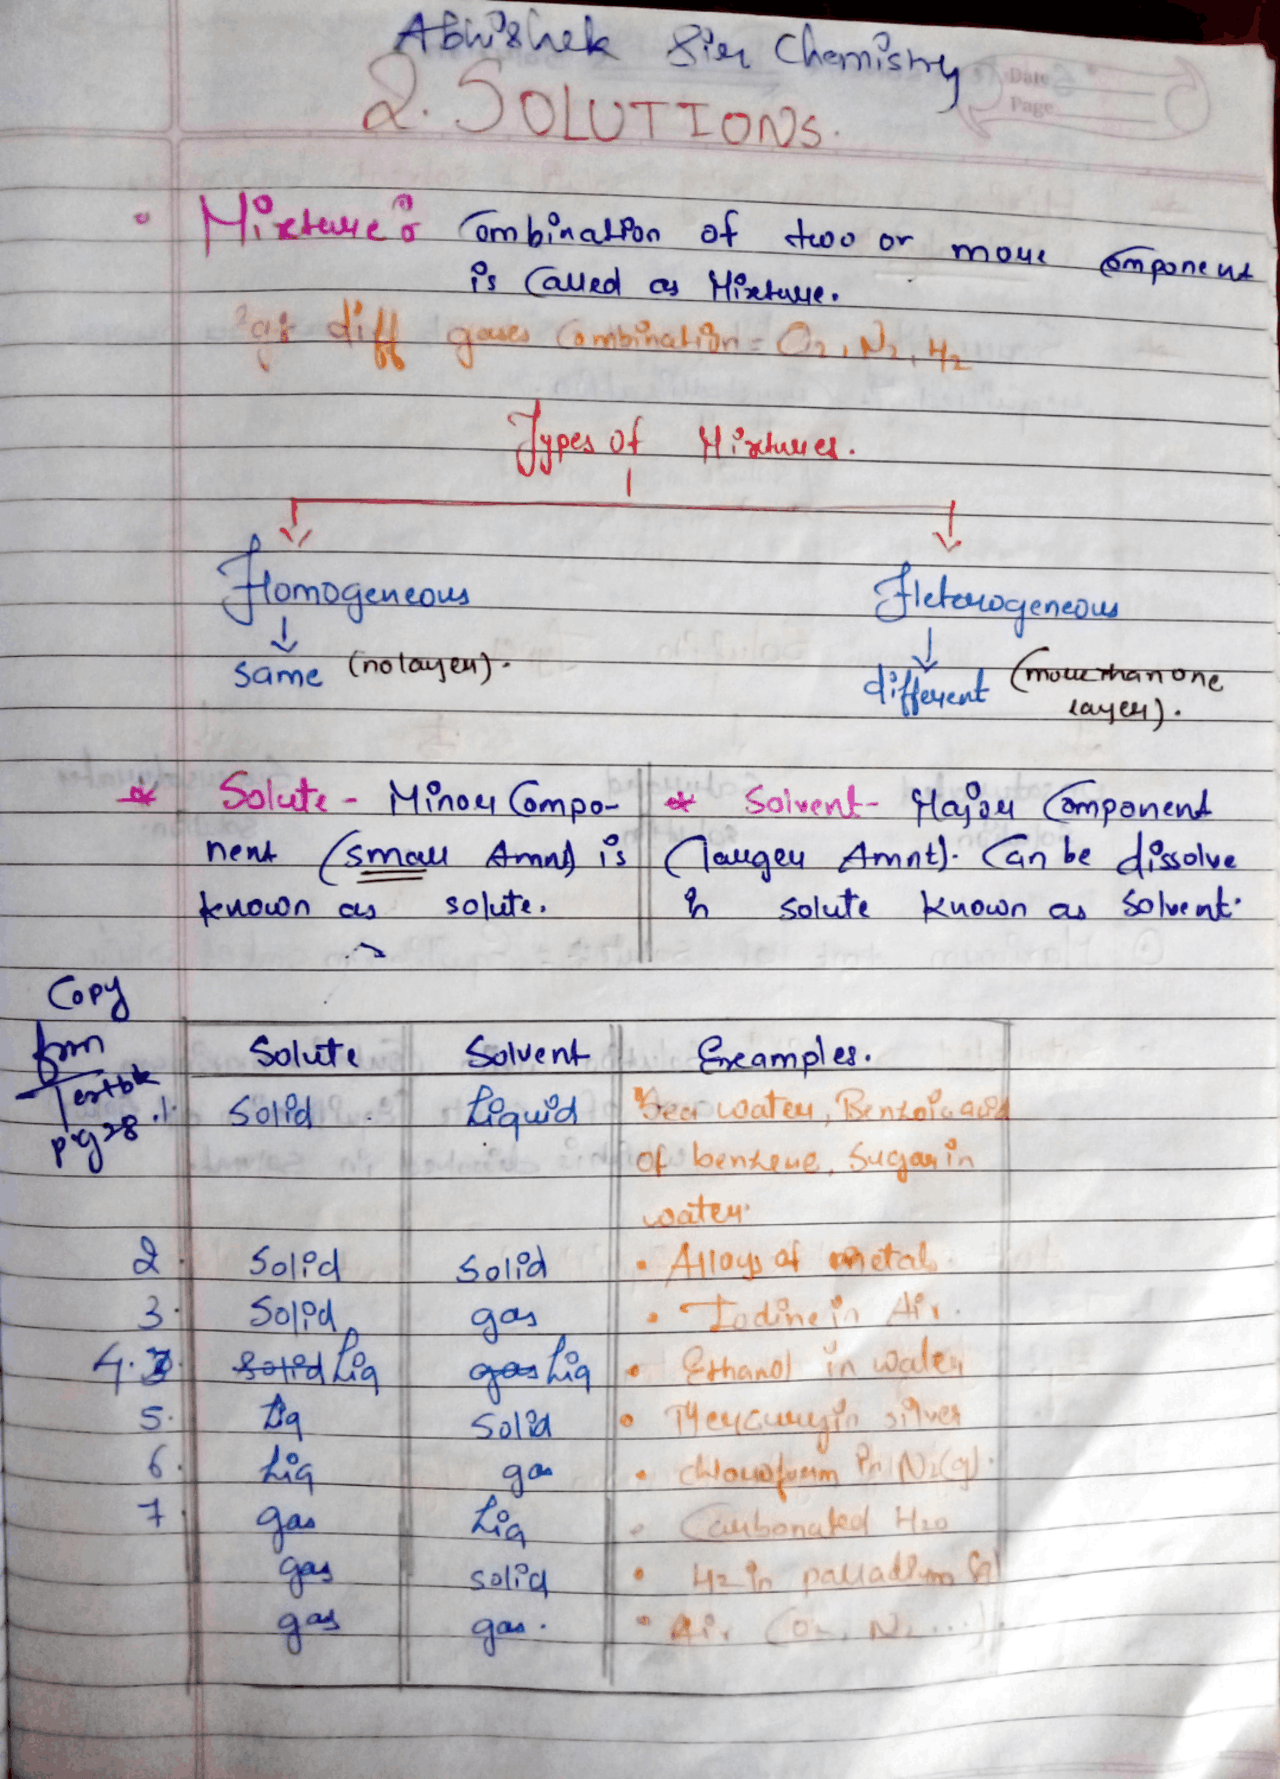 Abhishek Sir Chemistry
Date
Page
2. SOLUTIONS.
Mixture : Combination of two or more component
is Called as Mixture.
eg: diff gases Combination = O2, N2, H2
Types of Mixtures.
Homogeneous Heterogeneous
same (no layer). different (more than one
layer).
* Solute - Minor Compo- * Solvent - Major Component
nent (small Amnt) is (larger Amnt). Can be dissolve
known as solute. in solute known as Solvent.
Copy
from
Textbk
pg 28
Solute Solvent Examples.
1. Solid Liquid Sea water, Benzoic acid
of benzene, Sugar in
water.
2. Solid Solid • Alloys of metal.
3. Solid gas • Iodine in Air.
4. 3. Solid Liq gas Liq • Ethanol in water
5. Liq Solid • Mercury in silver
6. Liq gas • chloroform in N2(g).
7 gas Liq • Carbonated H2O
gas solid • H2 in palladium
gas gas. • Air (O2, N2 ...).